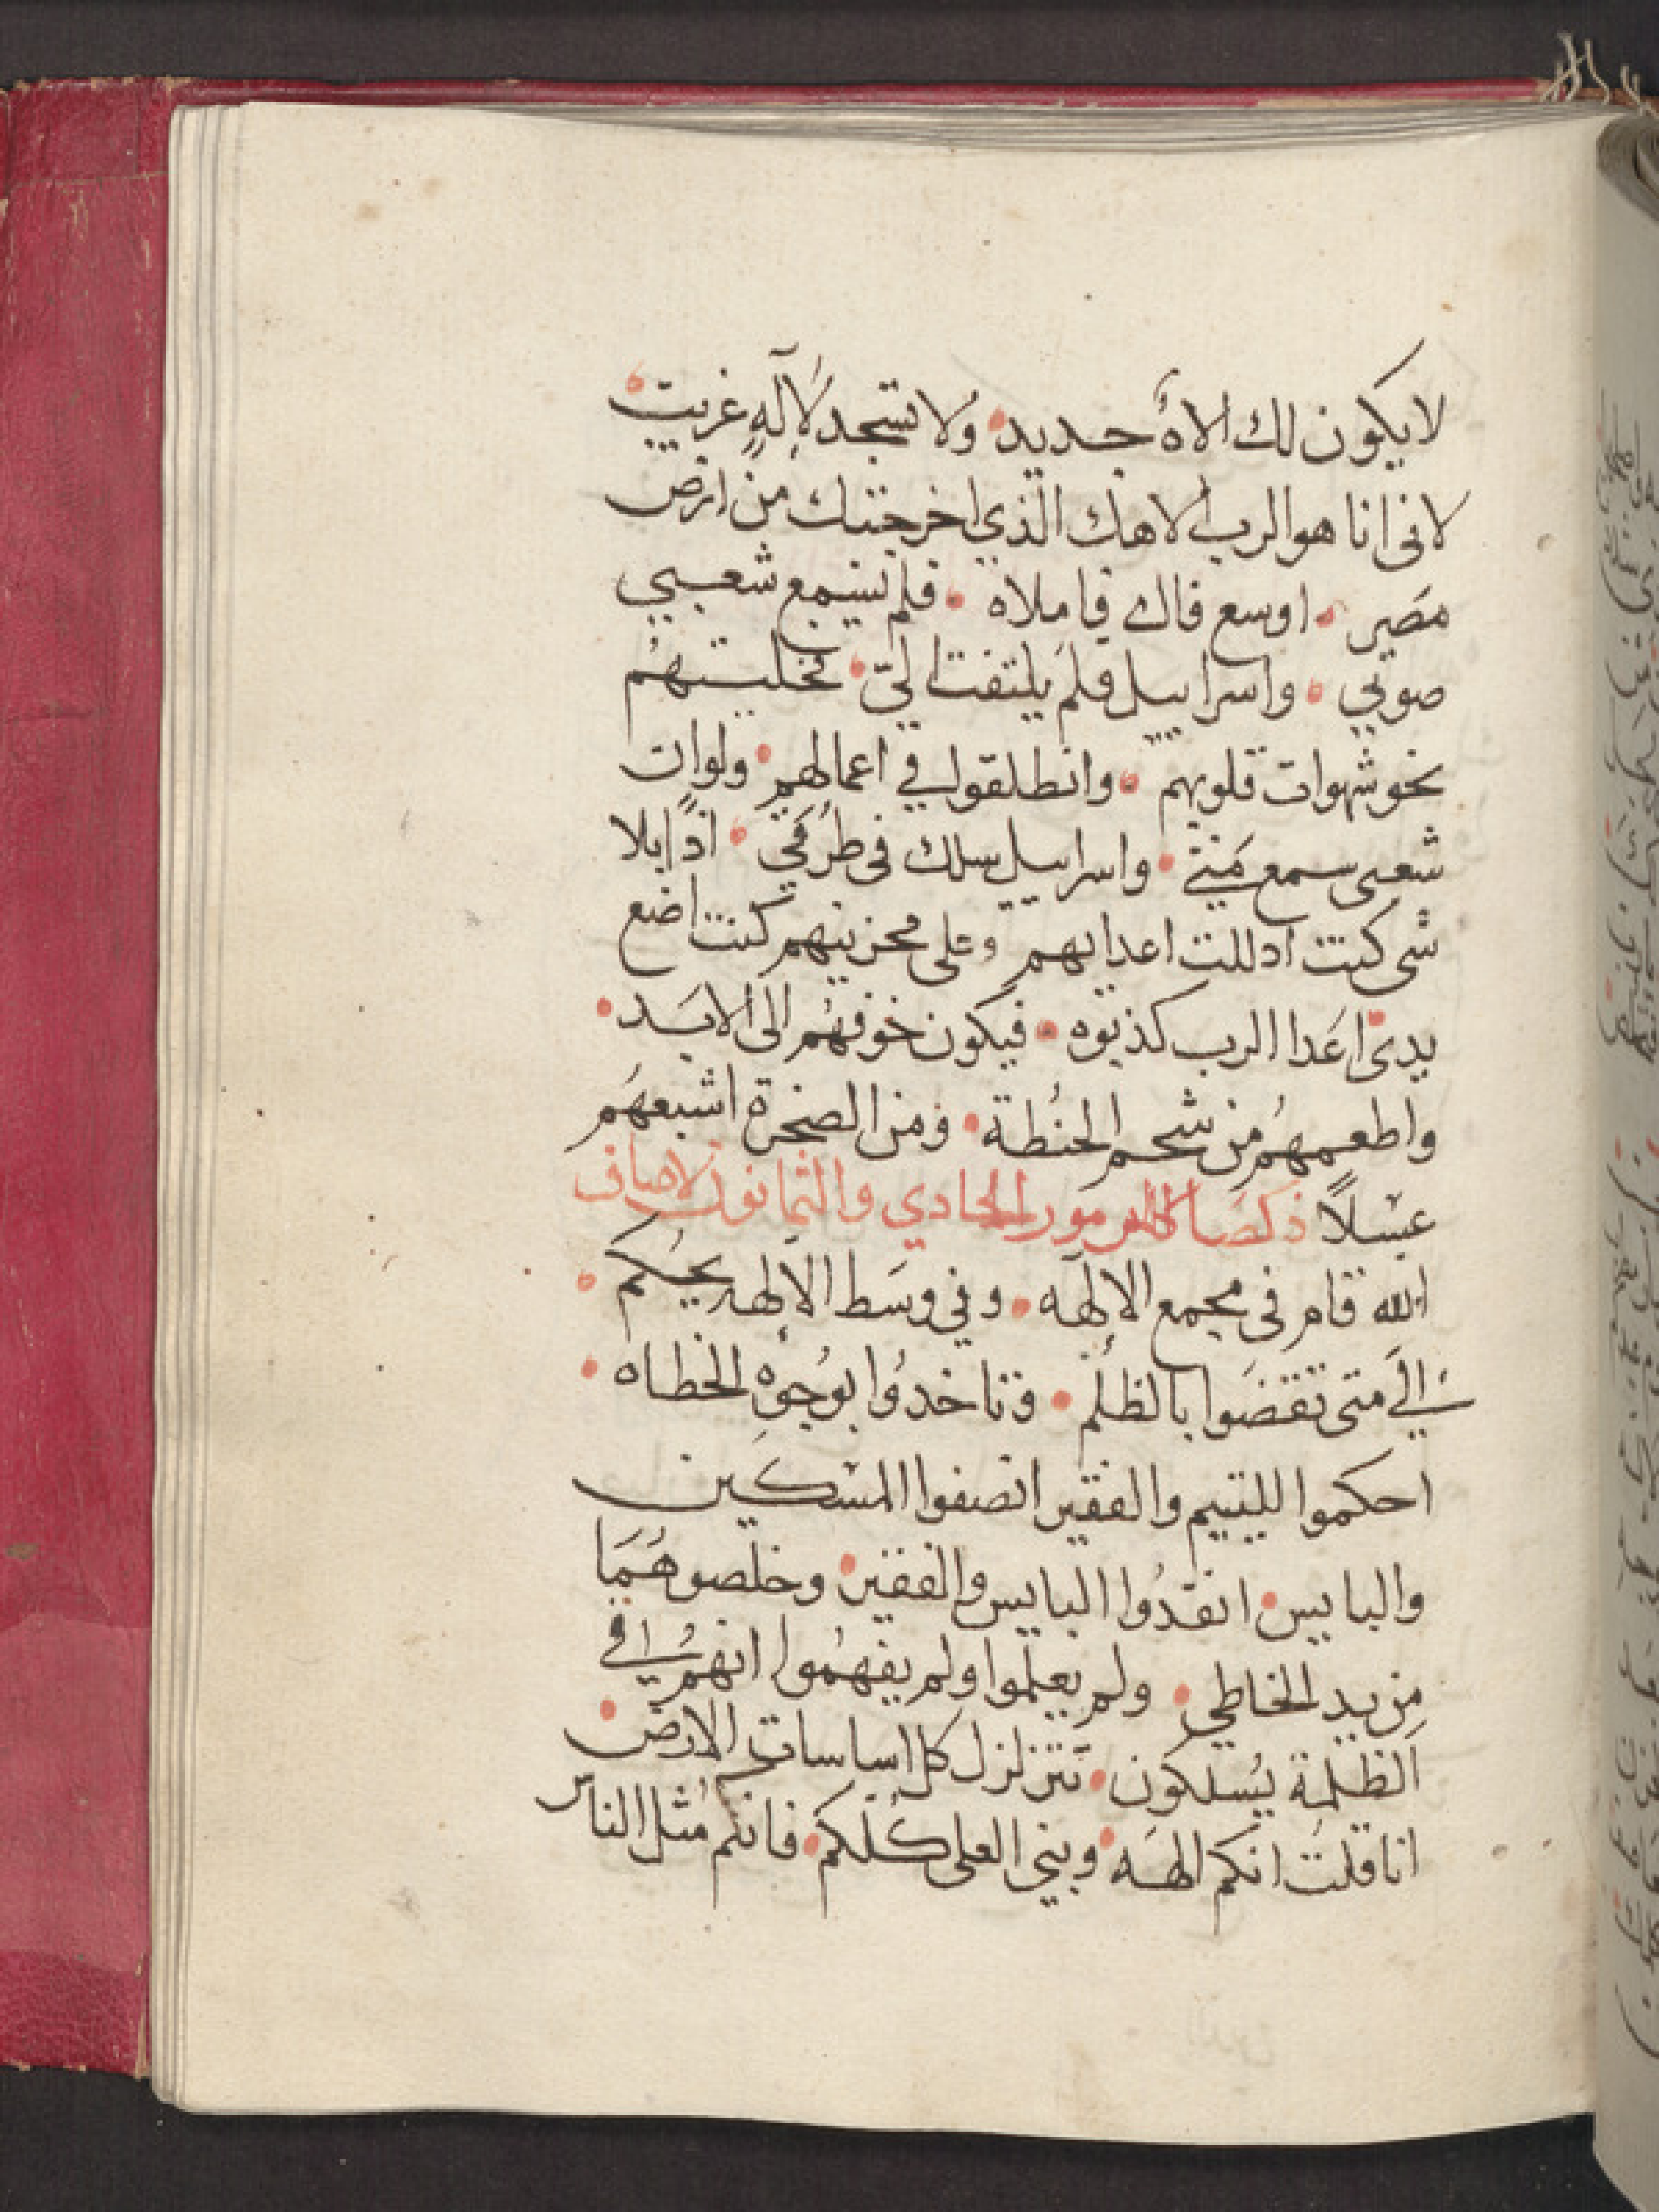 لا يكون لك الاهٌ جديد ولا تسجد لإلهٍ غريب
لانى انا هو الرب الاهك الذي اخرجتك من ارض
مصر اوسع فاك فاملاه فلم يسمع شعبي
صوتي واسراييل فلم يلتفت اليّ فخليتهم
نحو شهوات قلوبهم وانطلقوا في اعمالهم ولوان
شعبى سمع منّي واسراييل سلك فى طرقي اذًا بلا
شى كنت اذللت اعدايهم وعلى محزنيهم كنت اضع
يدى اعدا الرب كذبوه فيكون خوفهم الى الابد
واطعمهُم من شحم الحنُطة ومن الصخرة اشبعهم
عسلاً المزمور الحادي والثمانون لاصاف
الله قام فى مجمع الالهه وفي وسط الالهه يحكم
الى متى تقضوا بالظلم وتاخدُوا بوجوه الخطاه
احكموا لليتيم والفقير انصفوا المسكين
والبايس انقدُوا البايس والفقير وخلصوهما
من يد الخاطي ولم يعلموا ولم يفهموا انهم في
الظلمة يسلكون تتزلزل كل اساسات الارض
انا قلت انكم الهه وبني العلى كلكم فانتم مثل الناس